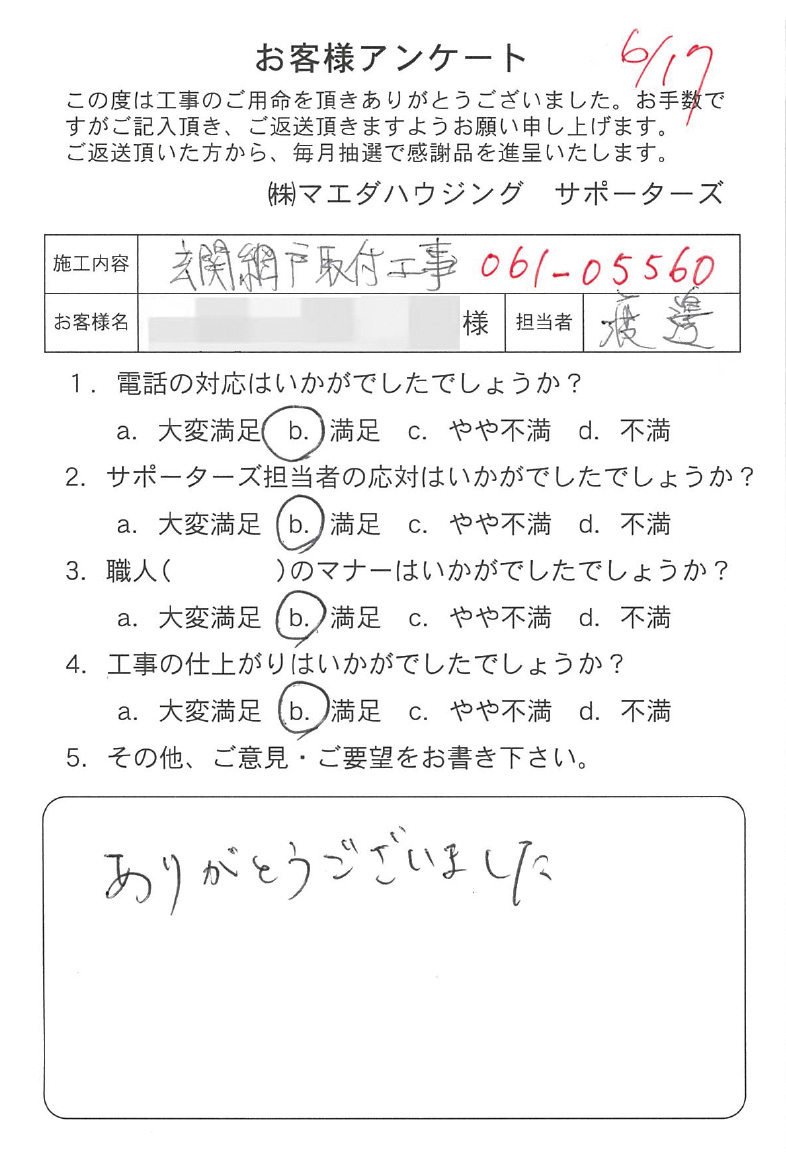 お客様アンケート
6/17
この度は工事のご用命を頂きありがとうございました。お手数で
すがご記入頂き、ご返送頂きますようお願い申し上げます。
ご返送頂いた方から、毎月抽選で感謝品を進呈いたします。
㈱マエダハウジング　サポーターズ
施工内容 玄関網戸取付工事 061-05560
お客様名 様 担当者 渡邊
1. 電話の対応はいかがでしたでしょうか？
a. 大変満足 b. 満足 c. やや不満 d. 不満
2. サポーターズ担当者の応対はいかがでしたでしょうか？
a. 大変満足 b. 満足 c. やや不満 d. 不満
3. 職人(　　　　)のマナーはいかがでしたでしょうか？
a. 大変満足 b. 満足 c. やや不満 d. 不満
4. 工事の仕上がりはいかがでしたでしょうか？
a. 大変満足 b. 満足 c. やや不満 d. 不満
5. その他、ご意見・ご要望をお書き下さい。
ありがとうございました